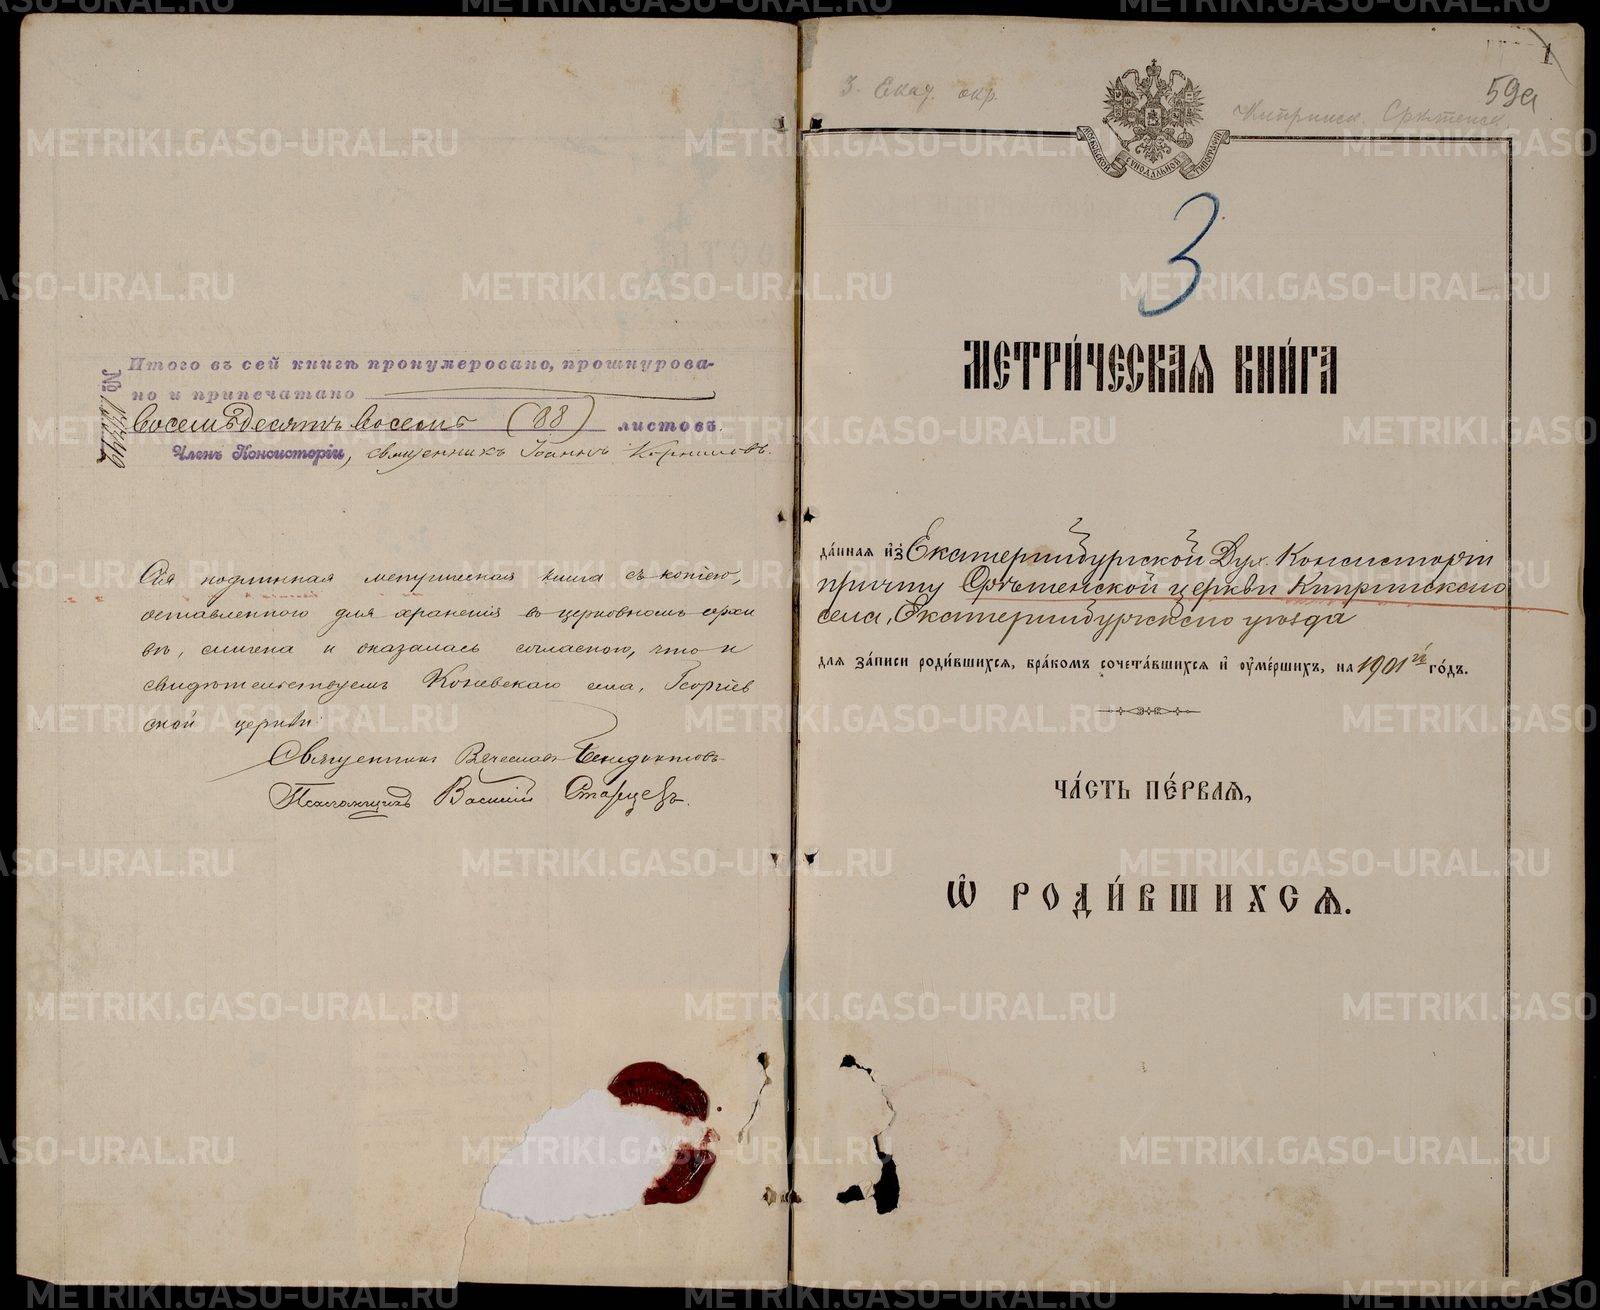 Итого въ сей книгѣ пронумеровано, прошнурова-
но и припечатано
восемьдесятъ восемь (88) листовъ.
Членъ Консисторіи, священникъ Іоаннъ Корниловъ.
Сія подлинная метрическая книга съ копіею,
оставленного для храненія въ церковномъ архи
вѣ, сличена и оказалась согласною, что и
свидѣтельствуемъ Коневскаго села, Георгіев
ской церкви:
Священникъ Вячеславъ Бенедиктовъ
Псаломщикъ Василій Старцевъ.
1
59а
3. Екат. окр.
Кипринск. Срѣтенск.
МОСКОВСКОЙ СѴНОДАЛЬНОЙ ТИПОГРАФІИ
3
МЕТРИ́ЧЕСКАѦ КНИ́ГА
да́нная и҆з̾ Екатеринбургской Дух. Консисторіи
причту Срѣтенской церкви Кипринскаго
села, Екатеринбургскаго уѣзда
для за́писи роди́вшихся, бра́комъ сочета́вшихся и҆ ᲂу҆ме́ршихъ, на 1901й го́дъ.
ЧА́СТЬ ПЕ́РВАѦ,
Ѽ РОДИ́ВШИХСѦ.
METRIKI.GASO-URAL.RU